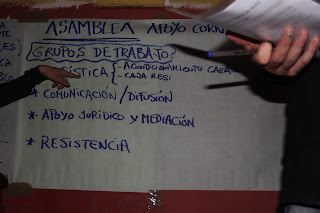 ASAMBLEA APOYO CORN
¿GRUPOS DE TRABAJO?
ÍSTICA {- ACONDICIONAMIENTO CASA
- CAJA RESI
* COMUNICACIÓN / DIFUSIÓN
* APOYO JURÍDICO Y MEDIACIÓN
* RESISTENCIA